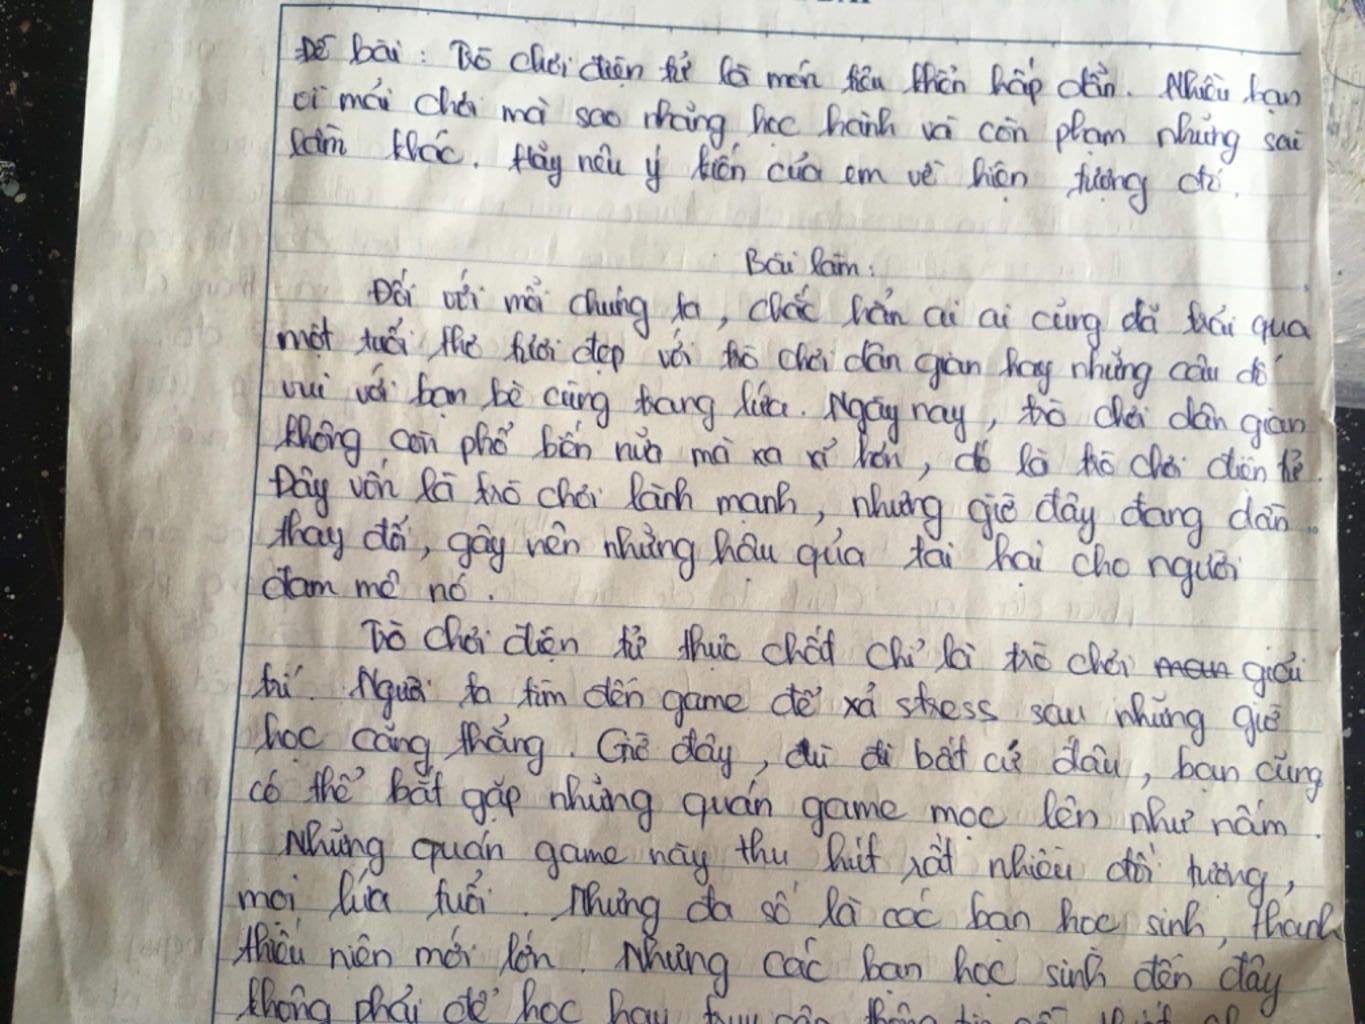 Đề bài : Trò chơi điện tử là món tiêu khiển hấp dẫn. Nhiều bạn
vì mải chơi mà sao nhãng học hành và còn phạm những sai
lầm khác. Hãy nêu ý kiến của em về hiện tượng đó.
Bài làm :
Đối với mỗi chúng ta, chắc hẳn ai ai cũng đã trải qua
một tuổi thơ tươi đẹp với trò chơi dân gian hay những câu đố
vui với bạn bè cùng trang lứa. Ngày nay, trò chơi dân gian
không còn phổ biến nữa mà xa xỉ hơn, đó là trò chơi điện tử.
Đây vốn là trò chơi lành mạnh, nhưng giờ đây đang dần
thay đổi, gây nên những hậu quả tai hại cho người
đam mê nó.
Trò chơi điện tử thực chất chỉ là trò chơi giải
trí. Người ta tìm đến game để xả stress sau những giờ
học căng thẳng. Giờ đây, dù đi bất cứ đâu, bạn cũng
có thể bắt gặp những quán game mọc lên như nấm.
Những quán game này thu hút rất nhiều đối tượng,
mọi lứa tuổi. Nhưng đa số là các bạn học sinh, thanh
thiếu niên mới lớn. Nhưng các bạn học sinh đến đây
không phải để học hay truy cập thông tin